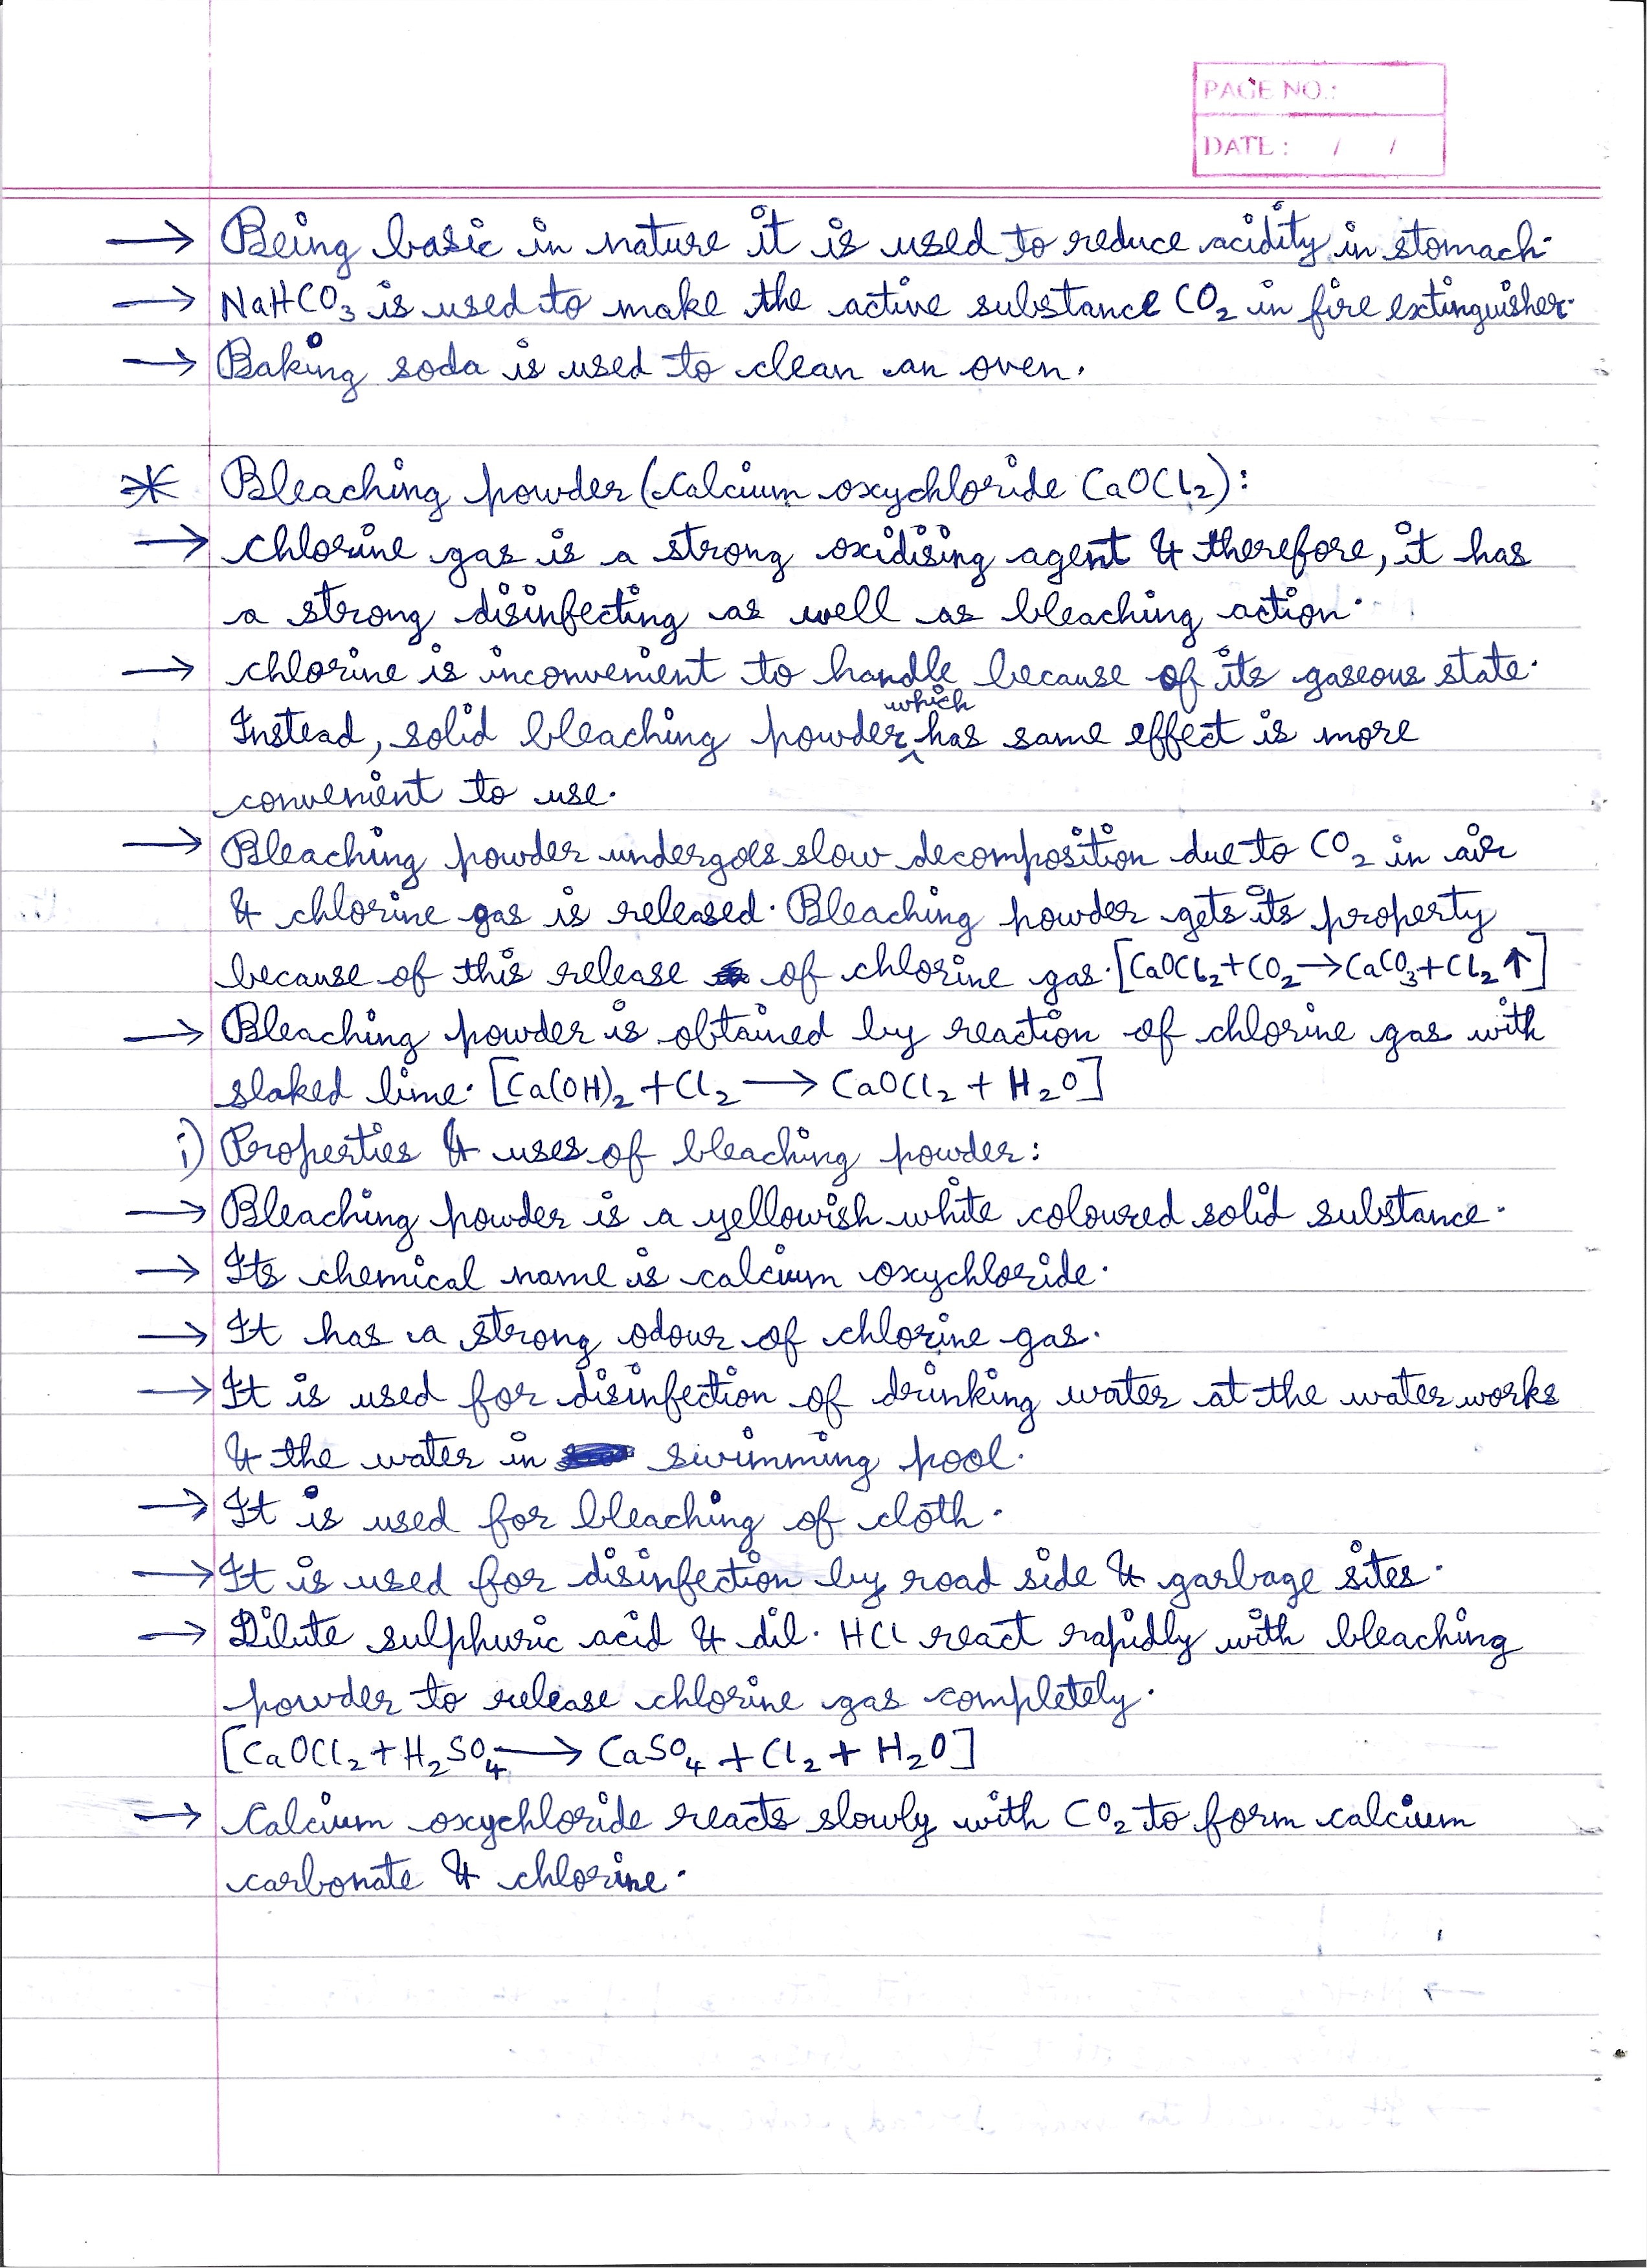 PAGE NO.:
DATE: / /
→ Being basic in nature it is used to reduce acidity in stomach.
→ NaHCO₃ is used to make the active substance CO₂ in fire extinguisher.
→ Baking soda is used to clean an oven.
* Bleaching powder (Calcium oxychloride CaOCl₂):
→ chlorine gas is a strong oxidising agent & therefore, it has
a strong disinfecting as well as bleaching action.
→ chlorine is inconvenient to handle because of its gaseous state.
Instead, solid bleaching powder which has same effect is more
convenient to use.
→ Bleaching powder undergoes slow decomposition due to CO₂ in air
& chlorine gas is released. Bleaching powder gets its property
because of this release of chlorine gas. [CaOCl₂+CO₂→CaCO₃+Cl₂↑]
→ Bleaching powder is obtained by reaction of chlorine gas with
slaked lime. [Ca(OH)₂+Cl₂→CaOCl₂+H₂O]
i) Properties & uses of bleaching powder:
→ Bleaching powder is a yellowish white coloured solid substance.
→ Its chemical name is calcium oxychloride.
→ It has a strong odour of chlorine gas.
→ It is used for disinfection of drinking water at the water works
& the water in swimming pool.
→ It is used for bleaching of cloth.
→ It is used for disinfection by road side & garbage sites.
→ Dilute sulphuric acid & dil. HCl react rapidly with bleaching
powder to release chlorine gas completely.
[CaOCl₂+H₂SO₄→CaSO₄+Cl₂+H₂O]
→ Calcium oxychloride reacts slowly with CO₂ to form calcium
carbonate & chlorine.